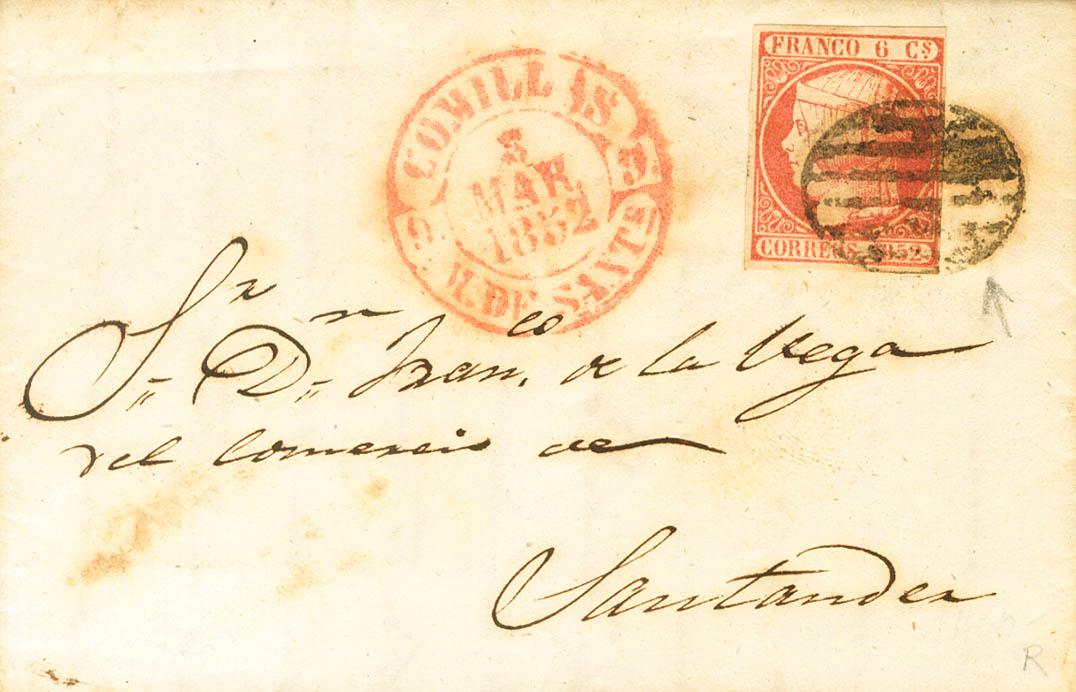 COMILLAS
3
MAR
1852
M. DE SANTR
FRANCO 6 Cs
CORREOS 1852
Sr. Dn. Franco. de la Vega
del Comercio de
Santander
R